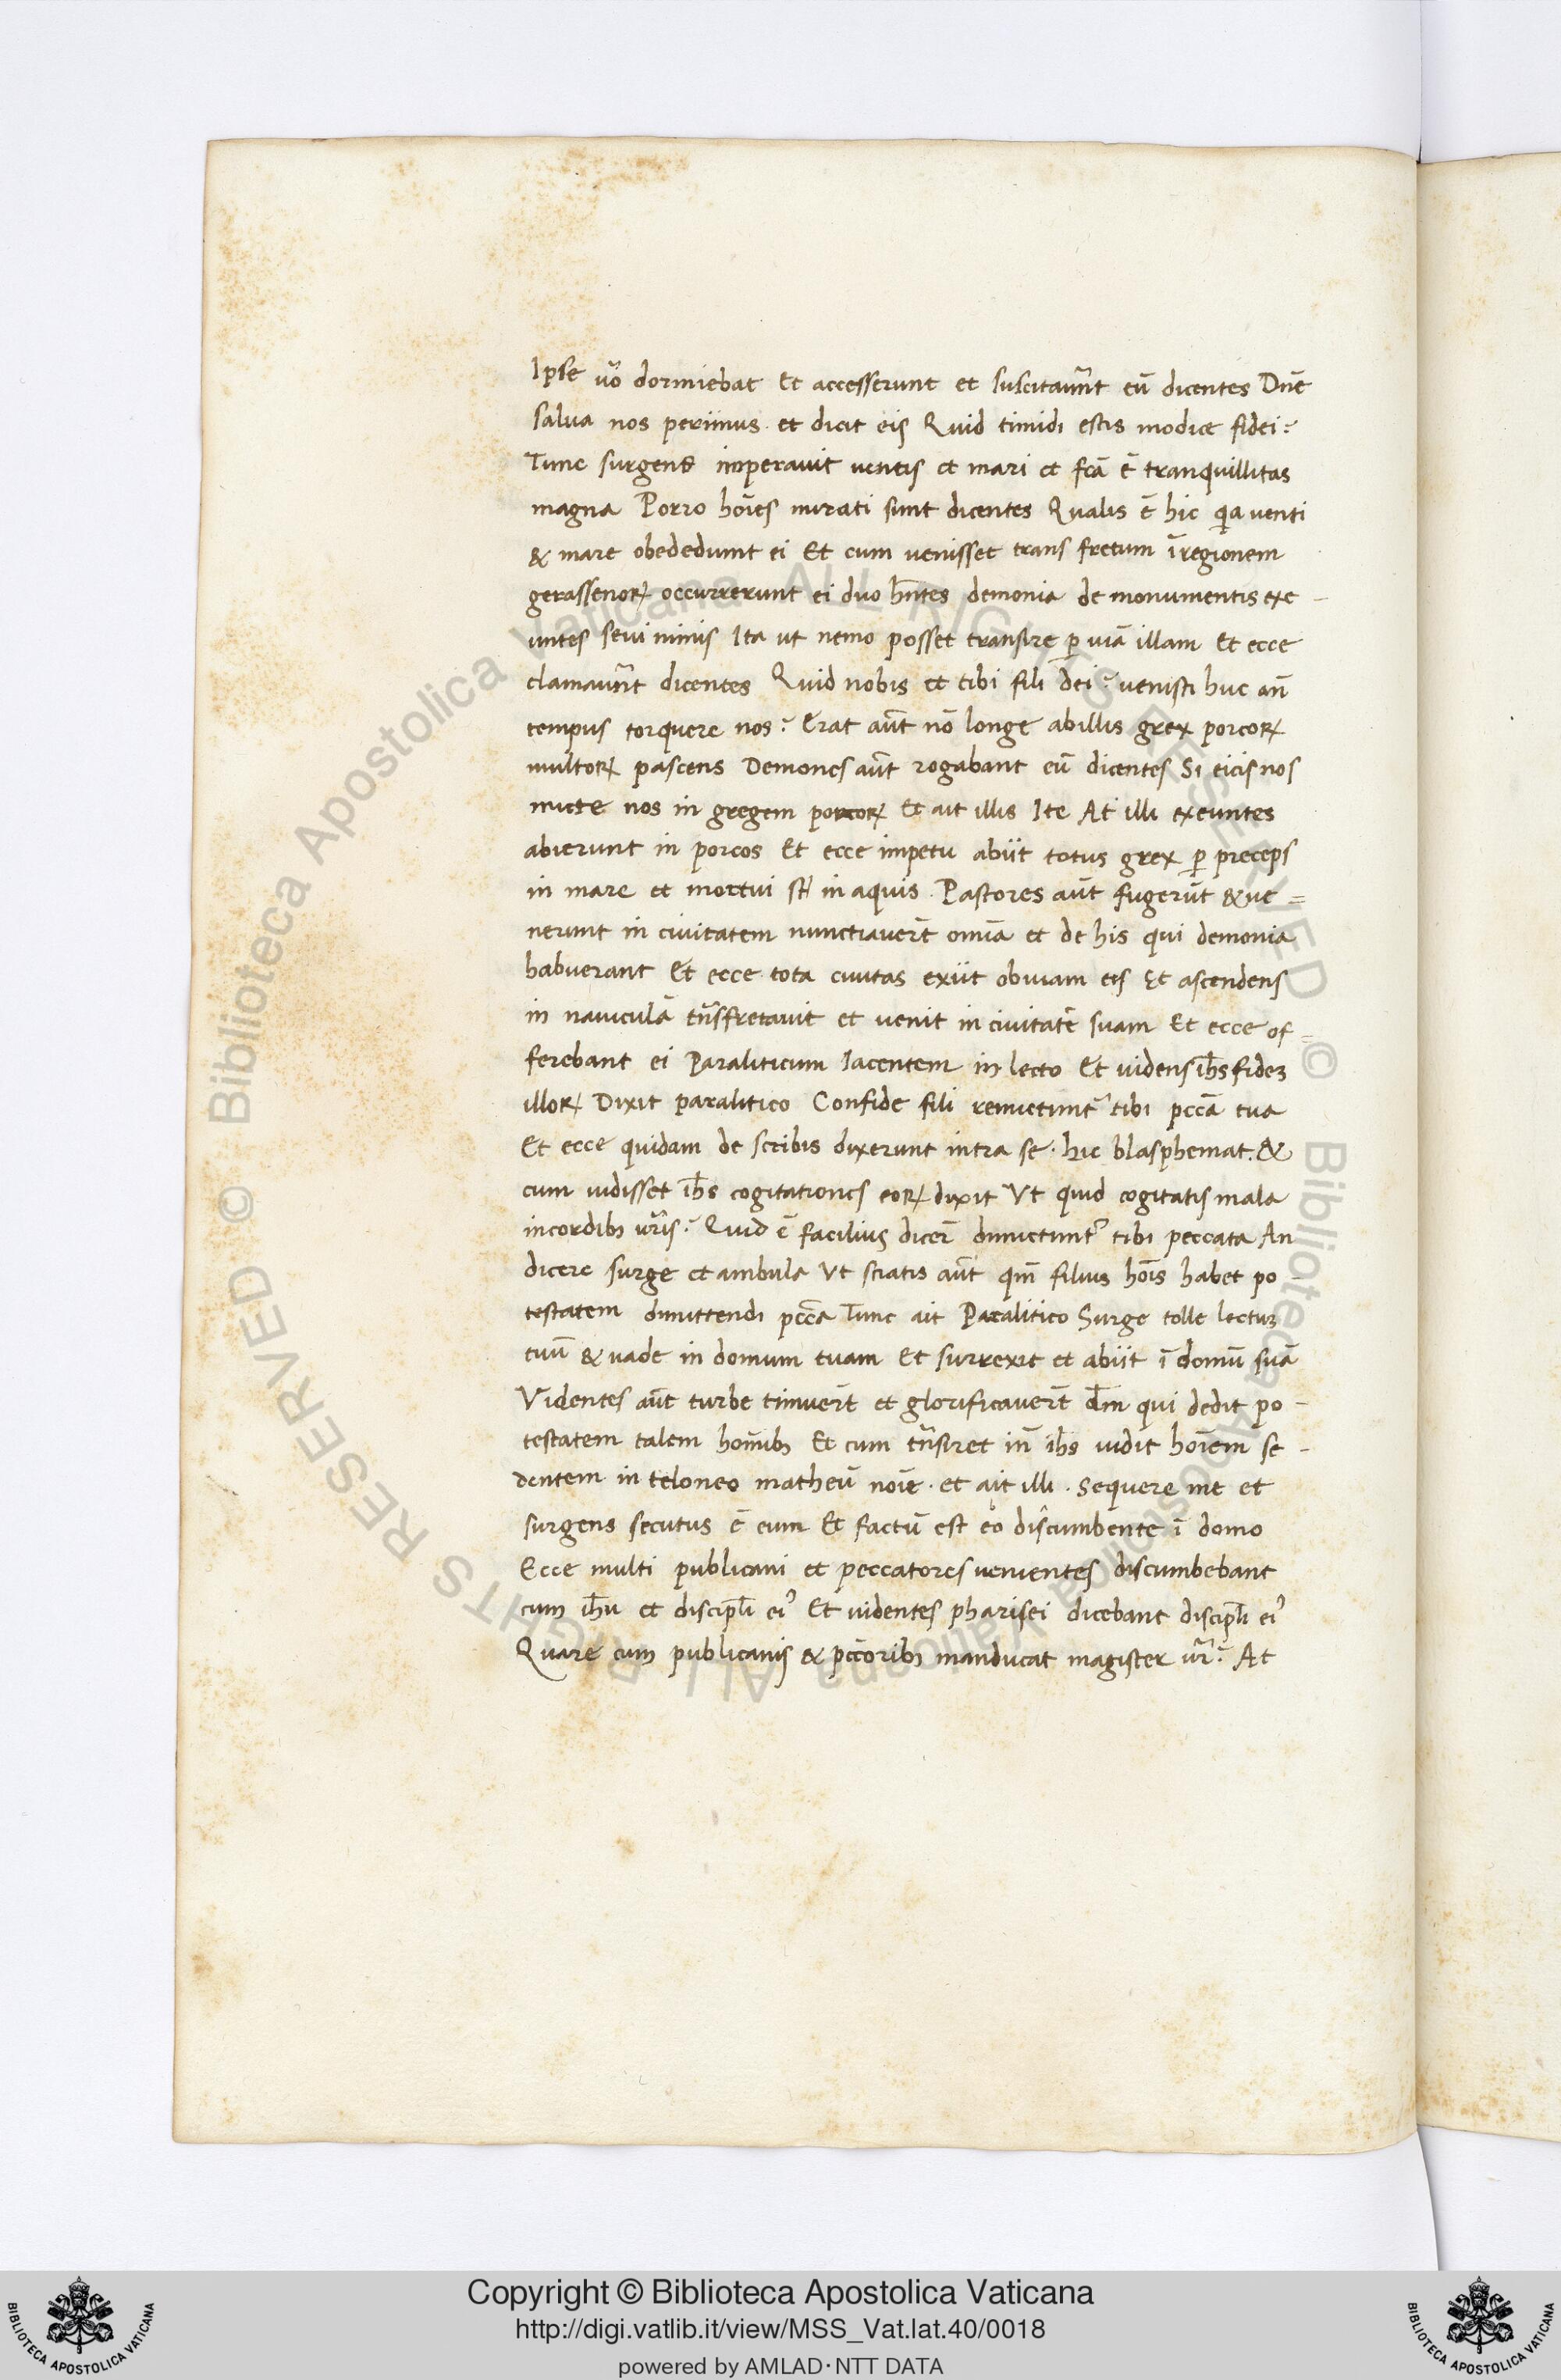 Ipse ṽo dormiebat Et accesserunt et suscitaur̃nt eũ dicentes Dñe
salua nos perimus. et dicit eis Quid timidi estis modice fidei?
Tunc surgens imperauit uentis et mari et fcã ẽ tranquillitas
magna Porro hoĩes mirati sunt dicentes Qualis ẽ hic q̃a uenti
& mare obededunt ei Et cum uenisset trans fretum ĩ regionem
gerassenoꝝ occurrerunt ei duo hñtes demonia de monumentis exe-
untes seui nimis Ita ut nemo posset transire ꝑ uiã illam Et ecce
clamaur̃nt dicentes Quid nobis et tibi fili dei? uenisti huc añ
tempus torquere nos? Erat aũt nõ longe ab illis grex porcoꝝ
multoꝝ pascens Demones aũt rogabant eũ dicentes Si eicis nos
mitte nos in gregem porcoꝝ Et ait illis Ite At illi exeuntes
abierunt in porcos Et ecce impetu abiit totus grex ꝑ preceps
in mare et mortui st̃ in aquis. Pastores aũt fugerũt & ue=
nerunt in ciuitatem nunctiauer̃t omĩa et de his qui demonia
habuerant Et ecce tota ciuitas exiit obuiam eis Et ascendens
in nauiculã tñsfretauit et uenit in ciuitatẽ suam Et ecce of=
ferebant ei Paraliticum Iacentem in lecto Et uidens ih̃s fideꝫ
illoꝝ Dixit paralitico Confide fili remictunt᷑ tibi pccã tua
Et ecce quidam de scribis dixerunt intra se. hic blasphemat. &
cum uidisset ih̃s cogitationes eoꝝ dixit Vt quid cogitatis mala
in cordibꝫ ur̃is? Quid ẽ facilius dicer̃ dimictunt᷑ tibi peccata An
dicere surge et ambula Vt sciatis aũt qm̃ filius hoĩs habet po-
testatem dimittendi pccã Tunc ait Paralitico Surge tolle lectuꝫ
tuũ & uade in domum tuam Et surrexit et abiit ĩ domũ suã
Videntes aũt turbe timuer̃t et glorificauer̃t dm̃ qui dedit po-
testatem talem homĩbꝫ Et cum tñsiret iñ ih̃s uidit hoĩem se-
dentem in teloneo matheũ noĩe. et ait illi. Sequere me et
surgens secutus ẽ eum Et factũ est eo discumbente ĩ domo
Ecce multi publicani et peccatores uenientes discumbebant
cum ih̃u et discipl̃i ei᷒ Et uidentes pharisei dicebant discipl̃i ei᷒
Quare cum publicanis & pcc̃oribꝫ manducat magister ur̃? At
Copyright © Biblioteca Apostolica Vaticana
http://digi.vatlib.it/view/MSS_Vat.lat.40/0018
powered by AMLAD·NTT DATA
BIBLIOTECA APOSTOLICA VATICANA
BIBLIOTECA APOSTOLICA VATICANA
© Biblioteca Apostolica Vaticana ALL RIGHTS RESERVED
© Biblioteca Apostolica Vaticana ALL RIGHTS RESERVED